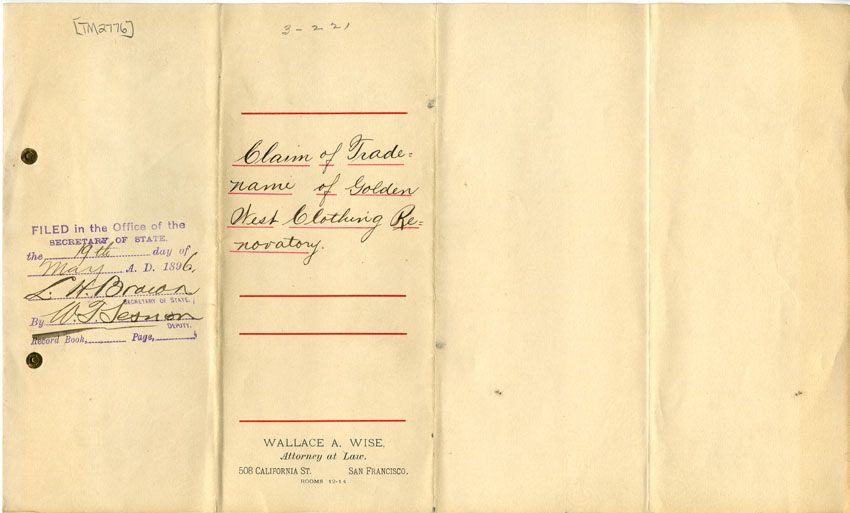 [TM2776]
3-221
Claim of Trade=
name of Golden
West Clothing Re=
novatory.
FILED in the Office of the
SECRETARY OF STATE.
the 19th day of
May A. D. 1896,
L. H. Brown
SECRETARY OF STATE,
By W. T. Sesnon
DEPUTY.
Record Book, Page,
WALLACE A. WISE,
Attorney at Law.
508 CALIFORNIA ST. SAN FRANCISCO.
ROOMS 12-14